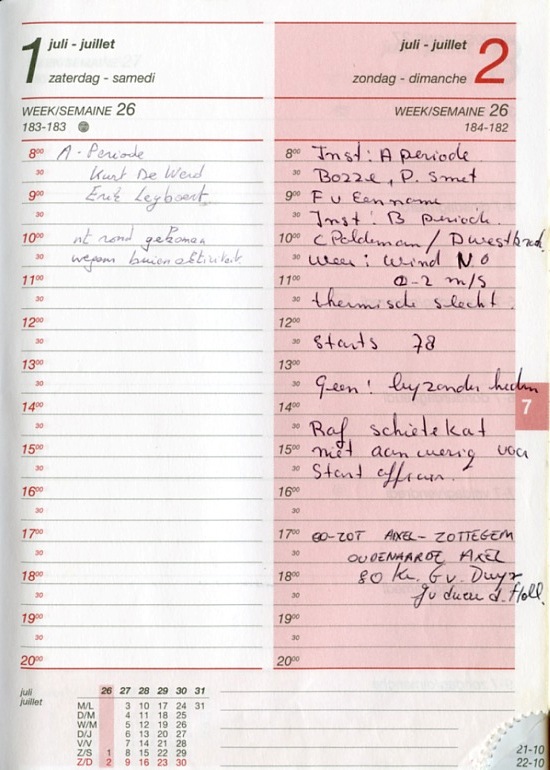 1 juli - juillet
zaterdag - samedi
WEEK/SEMAINE 26
183-183
8⁰⁰ A - Periode
30 Kurt De Werd
9⁰⁰ Erik Leybaert
30
10⁰⁰ nt rond gekomen
30 wegens buien aktiviteit
11⁰⁰
30
12⁰⁰
30
13⁰⁰
30
14⁰⁰
30
15⁰⁰
30
16⁰⁰
30
17⁰⁰
30
18⁰⁰
30
19⁰⁰
30
20⁰⁰
juli - juillet 2
zondag - dimanche
WEEK/SEMAINE 26
184-182
8⁰⁰ Inst: A periode
30 Bozze, P. Smet
9⁰⁰ F v Eenname
30 Inst: B periode.
10⁰⁰ C Poldeman / D westbroek
30 weer: wind NO
11⁰⁰ 0-2 m/s
30 thermisch slecht.
12⁰⁰
30 Starts 78
13⁰⁰
30 Geen! byzonder heden
14⁰⁰
30 Raf schietekat
15⁰⁰ niet aanwezig voor
30 Start
16⁰⁰
30
17⁰⁰ GO-ZOT AXEL - ZOTTEGEM
30 OUDENAARDE AXEL
18⁰⁰ 80 Km. G v.
30
19⁰⁰
30
20⁰⁰
7
juli
juillet
26 27 28 29 30 31
M/L 3 10 17 24 31
D/M 4 11 18 25
W/M 5 12 19 26
D/J 6 13 20 27
V/V 7 14 21 28
Z/S 1 8 15 22 29
Z/D 2 9 16 23 30
21-10
22-10